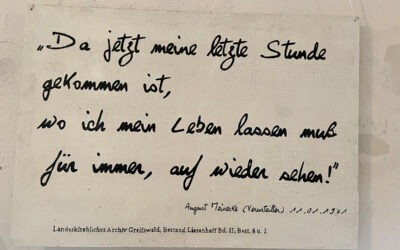 „Da jetzt meine letzte Stunde
gekommen ist,
wo ich mein Leben lassen muß
für immer, auf wieder sehen!"
August Meinecke (Verurteilter) 11.01.1941
Landeskirchliches Archiv Greifswald, Bestand Lierenhoff Bd. II, Best. 8 u. 2